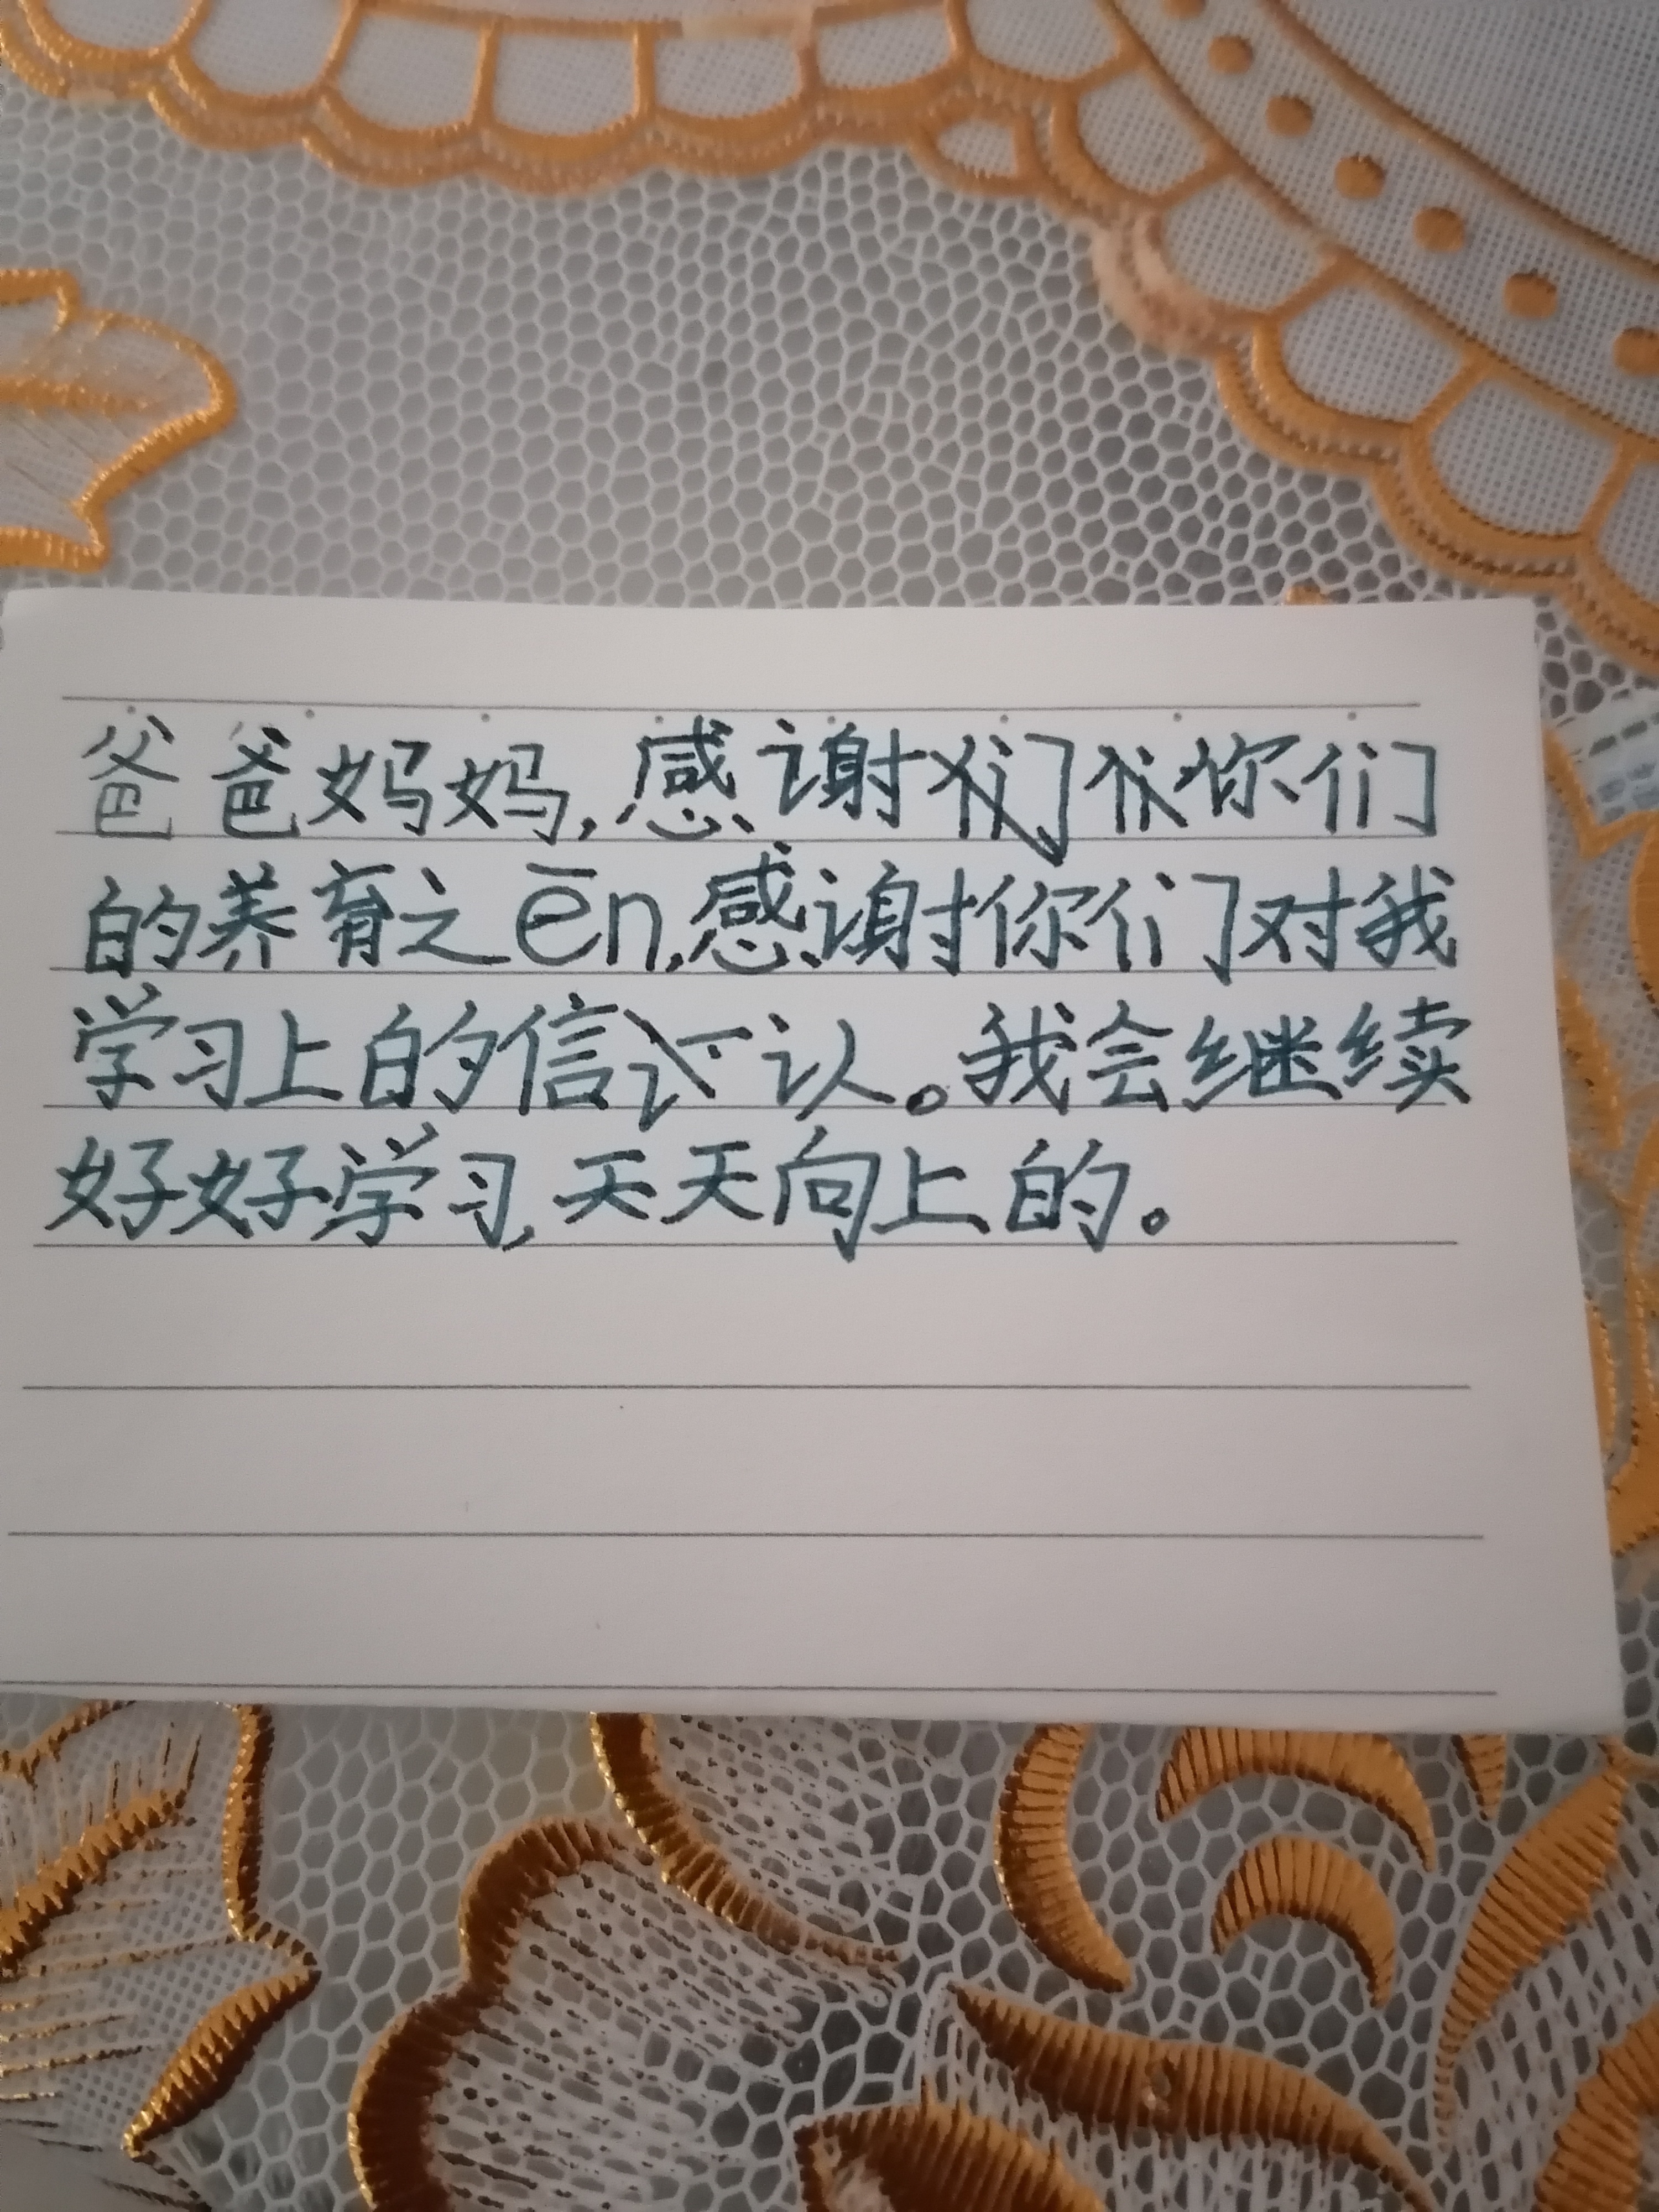 爸爸妈妈,感谢你们
的养育之ēn,感谢你们对我
学习上的信认。我会继续
好好学习,天天向上的。